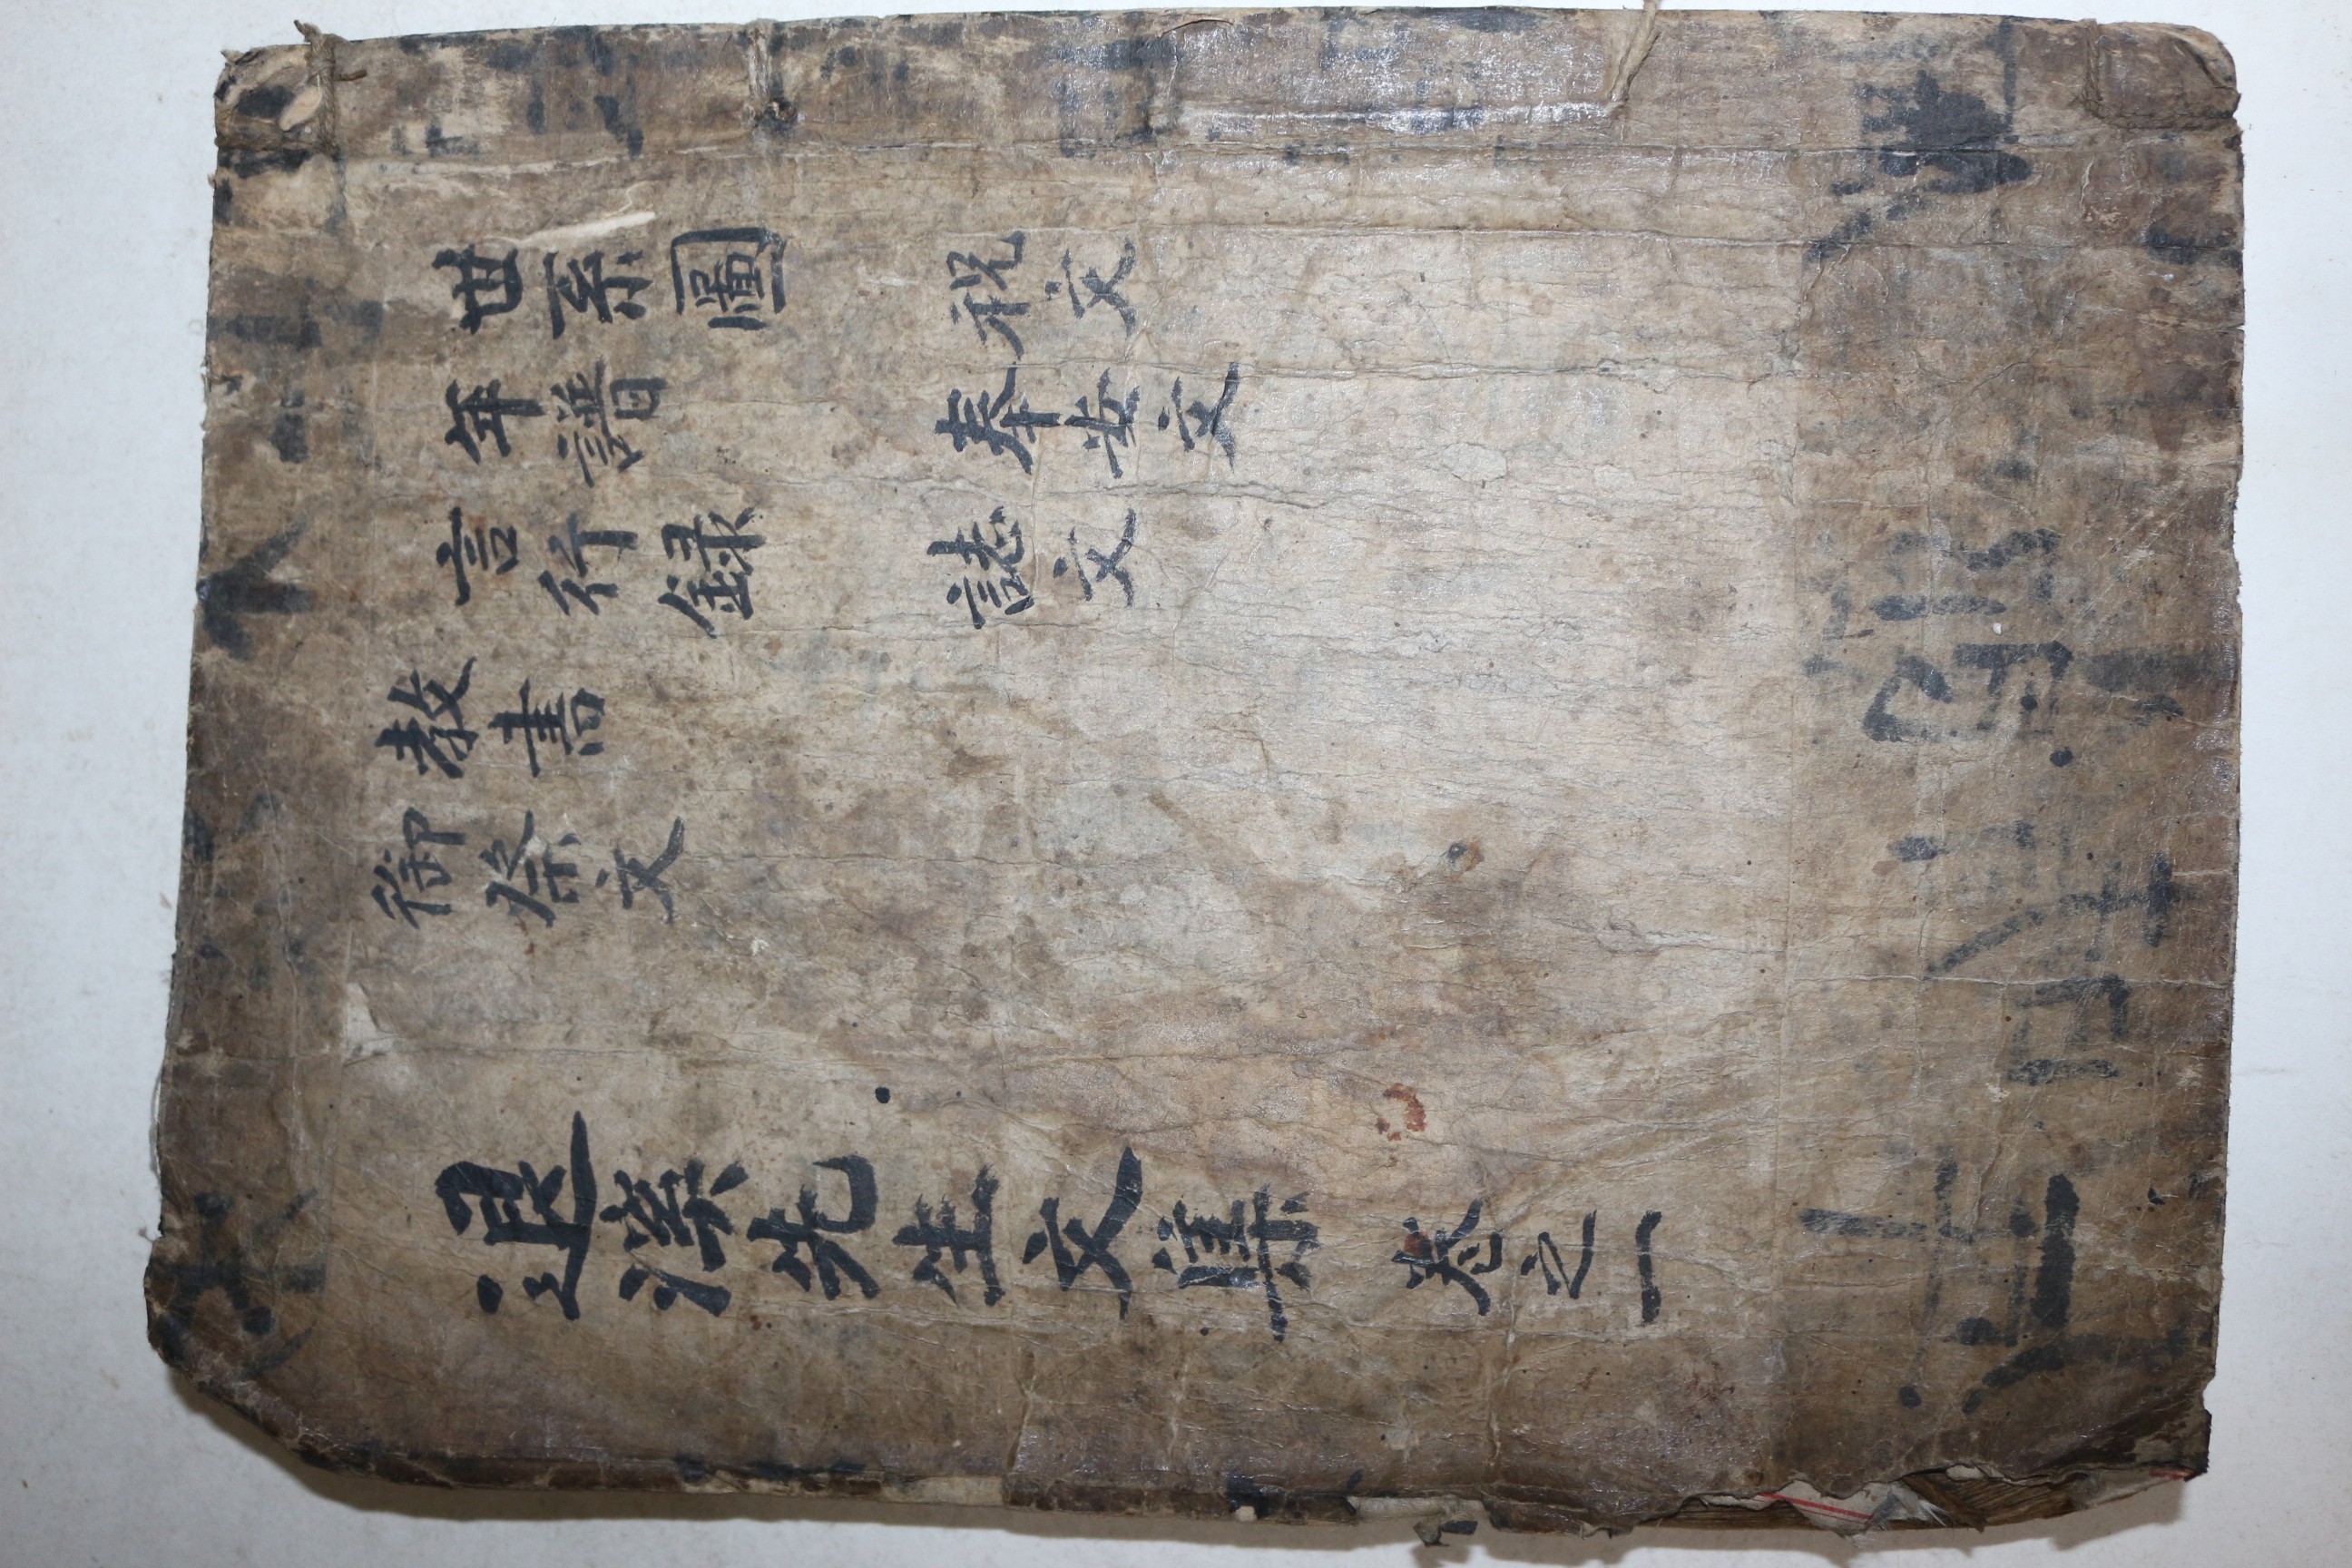 世系圖
年譜
言行録
教書
御祭文
祝文
奉安文
誌文
退溪先生文集 卷之一